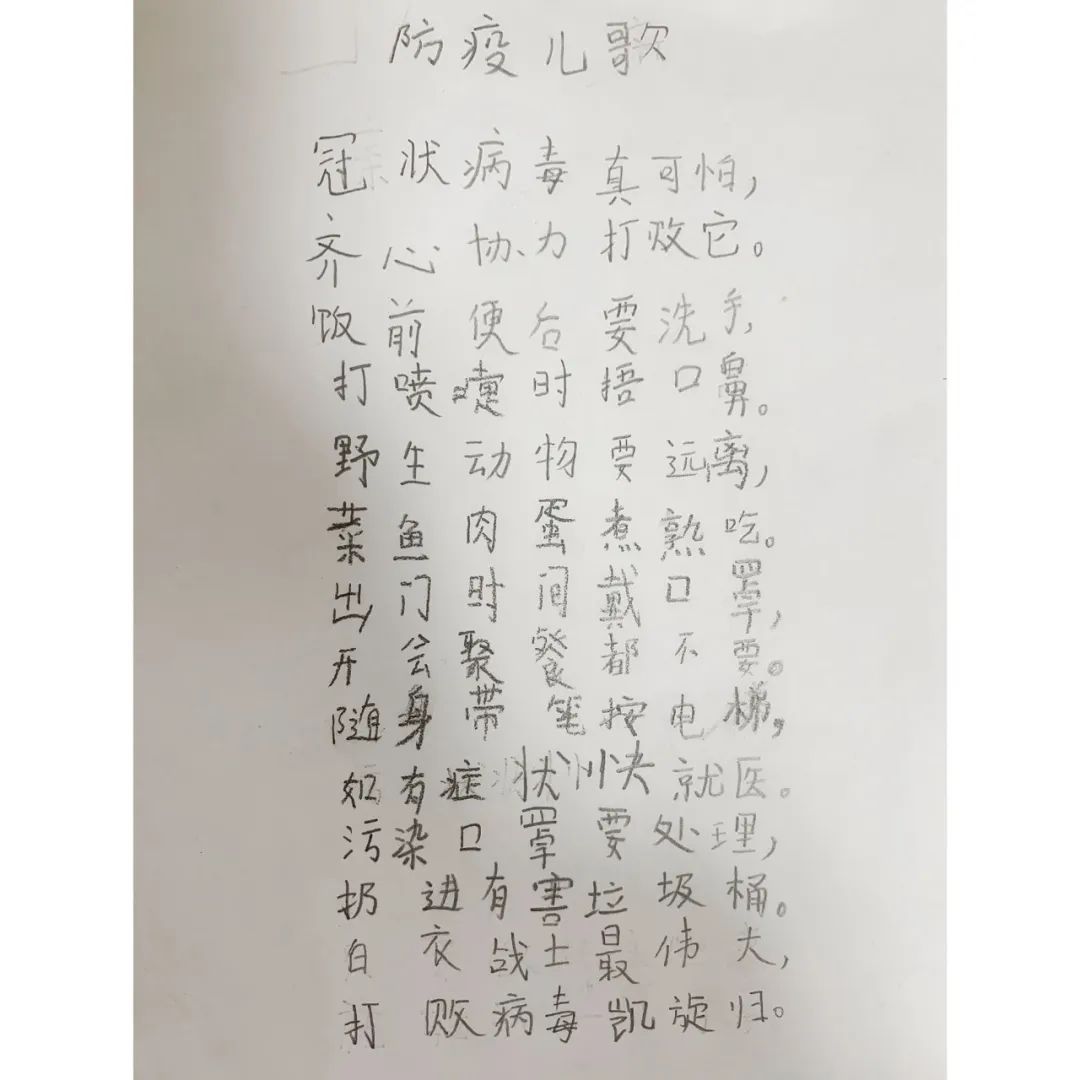 防疫儿歌
冠状病毒真可怕,
齐心协力打败它。
饭前便后要洗手,
打喷嚏时捂口鼻。
野生动物要远离,
菜鱼肉蛋煮熟吃。
出门时间戴口罩,
开会聚餐都不要。
随身带笔按电梯,
如有症状快就医。
污染口罩要处理,
扔进有害垃圾桶。
白衣战士最伟大,
打败病毒凯旋归。